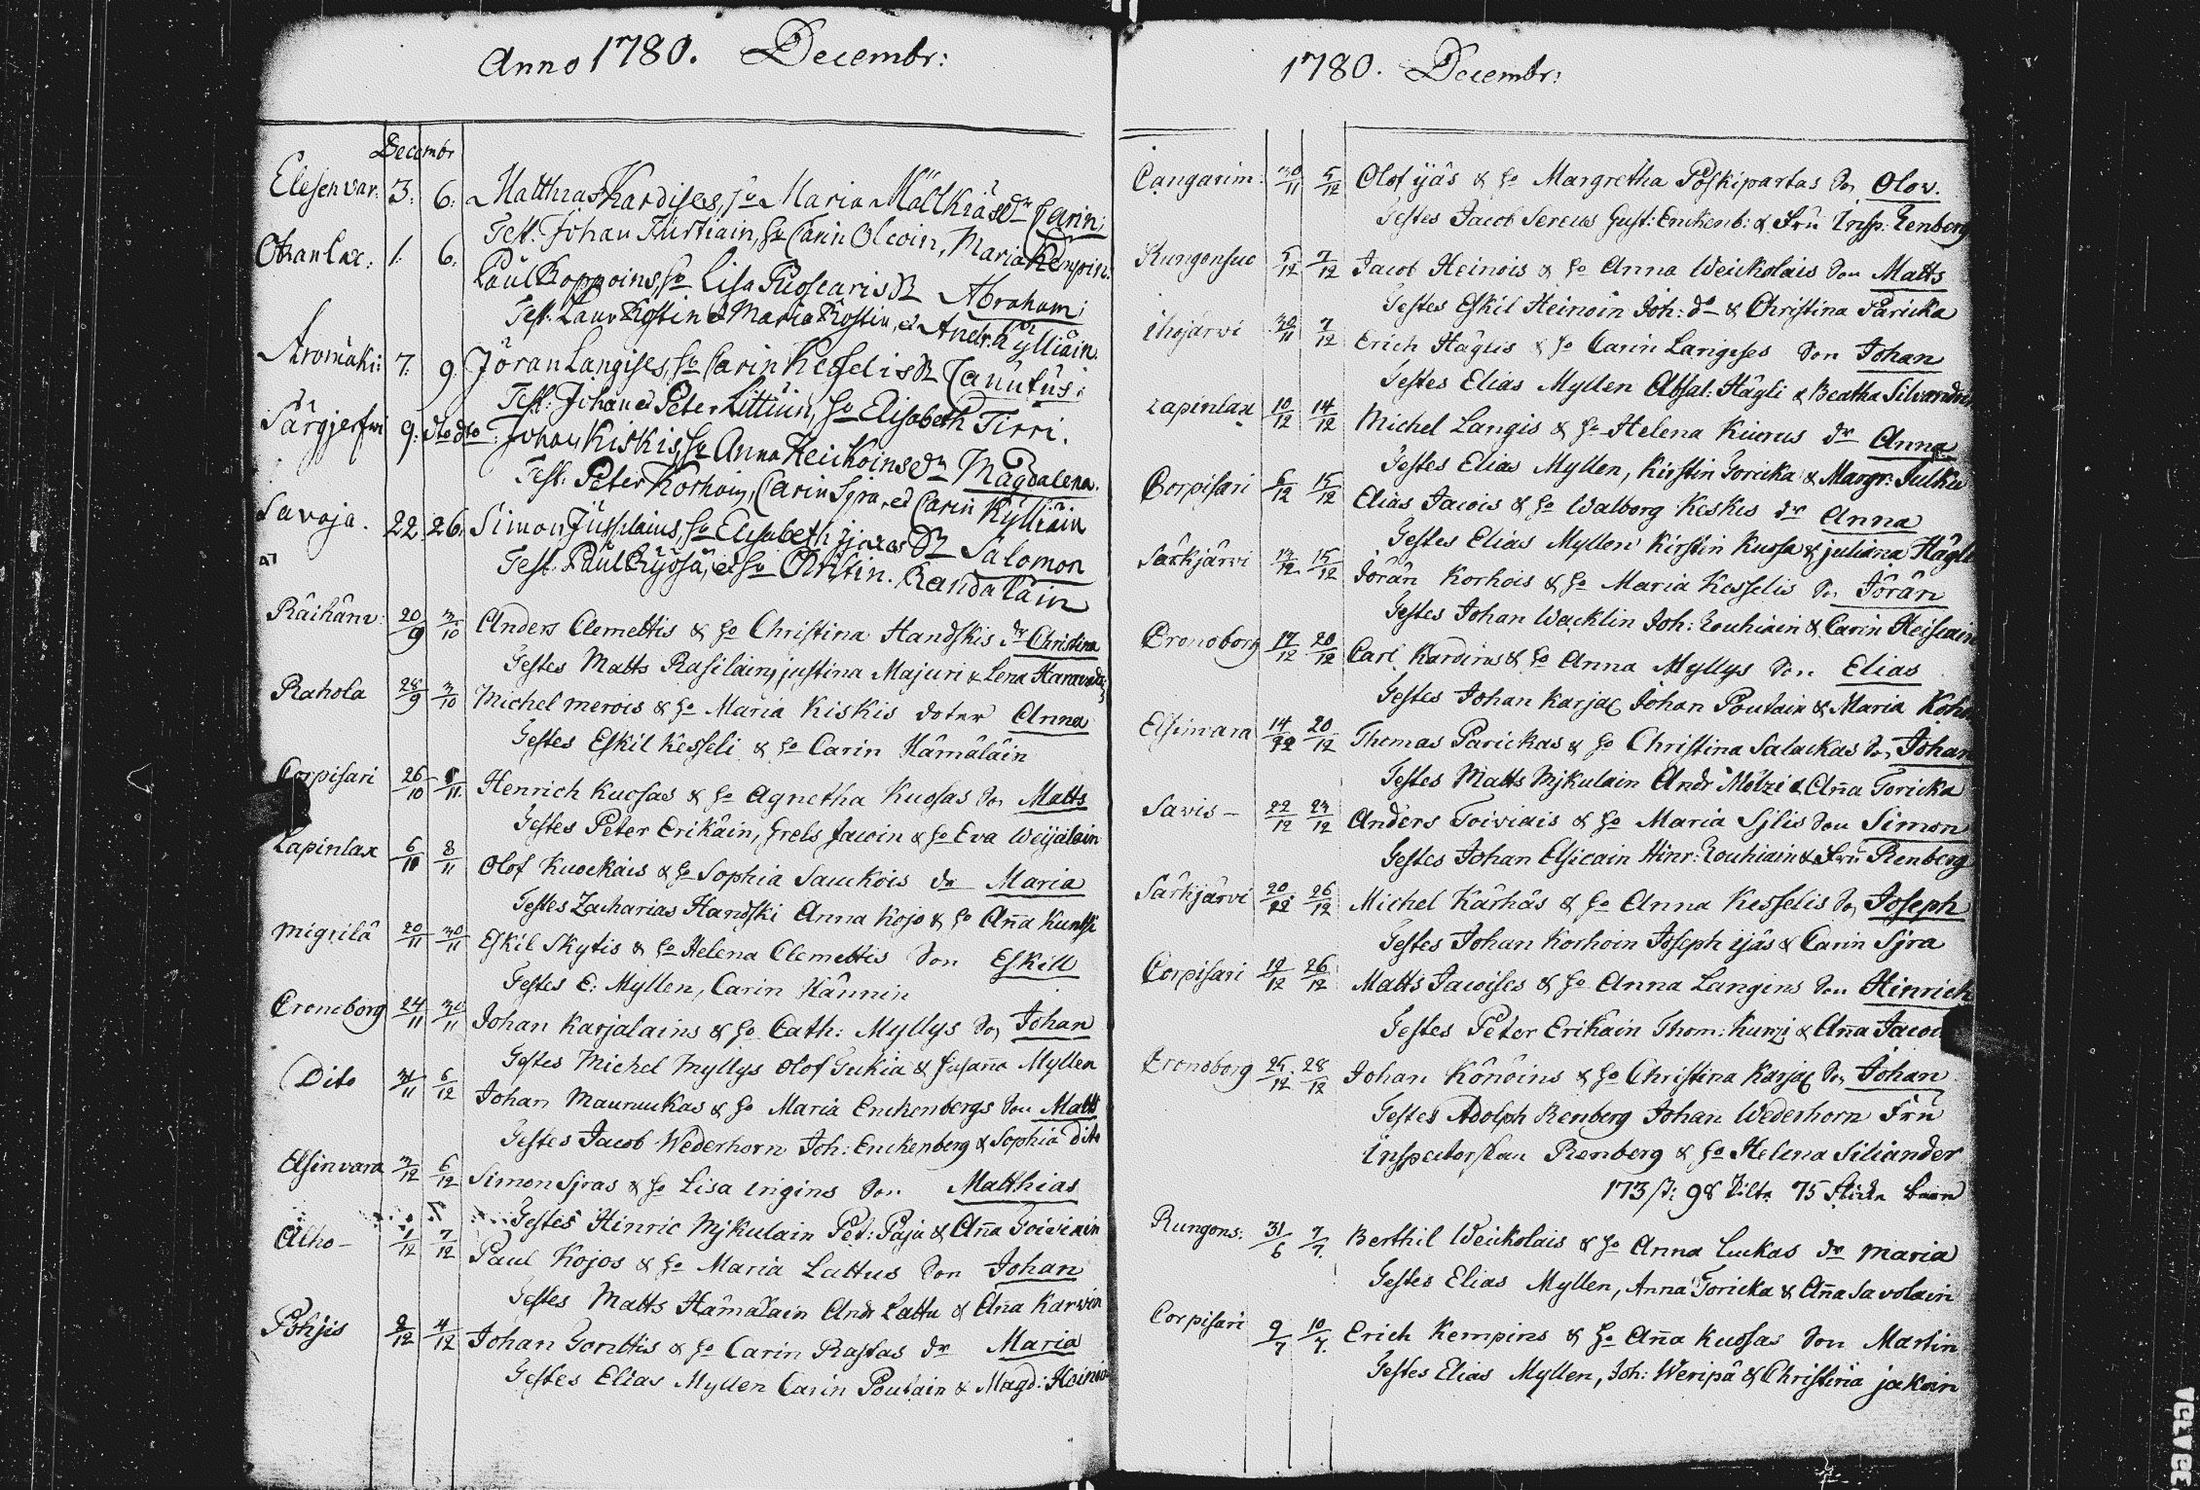 Anno 1780. Decembr:
Decembr
Elesenvar. 3. 6. Matthias Kardises, ho Maria Mölkiäs dr Carin;
Test: Johan Kurtiain, ho Carin Olcoin, Maria Kempin:
Otxanlax: 1. 6. Paul Koppoins, ho Lisa Puolearis dr Abraham;
Test: Laur Kostin & Maria Kostin, et Andr. Kylliäin.
Aromäki: 7. 9. Jöran Langises, ho Carin Kesselis dr Canutus:
Test: Johan et Peter Littiun, ho Elisabeth Tirri.
Särgjerfwi 9. dto dto Johan Kiskis, ho Anna Heickoins dr Magdalena.
Test: Peter Korhoin, Carin Sjra, et Carin Kylliäin
Savoja. 22. 26. Simon Jussilains, ho Elisabeth ijäxes dr Salomon
Test. Paul Ryösä, et ho Christin. Randaläin
Räihänv: 20/9 3/10 Anders Clemettis & ho Christina Handskis dr Christina
Testes Matts Rasilain, justina Majuri & Lena
Rahola 28/9 3/10 Michel merois & ho Maria Kiskis doter Anna
Testes Eskil Kesseli & ho Carin Hämäläin
Corpisari 26/10 /11 Henrich Kuosas & ho Agnetha Kuosas Son Matts
Testes Peter Erikäin, Grels Jacoin & ho Eva Weijäläin
Lapinlax 6/11 8/11 Olof Kuockais & ho Sophia Sauckois dr Maria
Testes Zacharias Handski Anna Kojo & ho Aña Kuntsi
Migrilä 20/11 30/11 Eskil Skytis & ho Helena Clemettis Son Eskill
Testes E: Myllen, Carin Hännin
Croneborg 24/11 30/11 Johan Karjalains & ho Cath: Myllys Son Johan
Testes Michel Myllys Olof Tukia & Susaña Myllen
Dito 31/11 6/12 Johan Maunukas & ho Maria Enckenbergs Son Matts
Testes Jacob Wederhorn Joh: Enckenberg & Sophia Dito
Elsinvara 3/12 6/12 Simon Sjras & ho Lisa Origins Son Matthias
Testes Hinric Mjkulain Pet: Paja & Aña Toiviain
Alho - 1/12 7/12 Paul Kojos & ho Maria Lattus Son Johan
Testes Matts Hämäläin Andr Lattu & Aña Karvin
Pohjis 2/12 4/12 Johan Torittis & ho Carin Rastas dr Maria
Testes Elias Myllen Carin Poutain & Magd: Heinoin
1780. Decembr:
Cangarim: 30/11 5/12 Olof ijäs & ho Margretha Poskipartas Son Olov.
Testes Jacob Sereus Gust: Enckenb: & Fru Insp: Renberg
Kungonsuo 5/12 7/12 Jacob Heinois & ho Anna Weickolais Son Matts
Testes Eskil Heinoin Joh: do & Christina Paricka
Ihojärvi 30/11 7/12 Erich Häglis & ho Carin Langises Son Johan
Testes Elias Myllen Absal: Hägli & Beatha
Lapinlax 10/12 14/12 Michel Langis & ho Helena Kiurus dr Anna
Testes Elias Myllen, Kirstin Toricka & Margr: Julku
Corpisari 6/12 15/12 Elias Jacois & ho Walborg Keskis dr Anna
Testes Elias Myllen Kirstin Kuosa & juliana Hägli
Särkjärvi 12/12 15/12 Jörän Korhois & ho Maria Kesselis Son Jörän
Testes Johan Wacklin Joh: Rouhiain & Carin Heiscain
Cronoborg 17/12 20/12 Carl Kardins & ho Anna Myllys Son Elias
Testes Johan Karjal Johan Poutain & Maria
Elsinvara 14/12 20/12 Thomas Parickas & ho Christina Salackas Son Johan
Testes Matts Mjkulain Andr Mölzi & Aña Toricka
Savis - 22/12 23/12 Anders Toiviais & ho Maria Sjlis Son Simon
Testes Johan Elsicain Hinr: Rouhiain & Fru Renberg
Särkjärvi 20/12 26/12 Michel Kärhäs & ho Anna Kesselis Son Joseph
Testes Johan Korhoin Joseph ijäs & Carin Sjra
Corpisari 19/12 26/12 Matts Jacoises & ho Anna Langins Son Hinrich
Testes Peter Erikain Thom: Kunzi & Aña Jacoi
Cronoborg 25/12 28/12 Johan Könöins & ho Christina Karjal Son Johan
Testes Adolph Renberg Johan Wederhorn Fru
Inspectorskan Renberg & ho Helena Siliander
173 st: 98 Pilt. 75 Flick barn
Kungons: 31/6 7/7. Berthil Weickolais & ho Anna Luckas dr Maria
Testes Elias Myllen, Anna Toricka & Aña Savolain
Corpisari 9/7 10/7. Erich Kempins & ho Aña Kuosas Son Martin
Testes Elias Myllen, Joh: Weripä & Christina jakoin